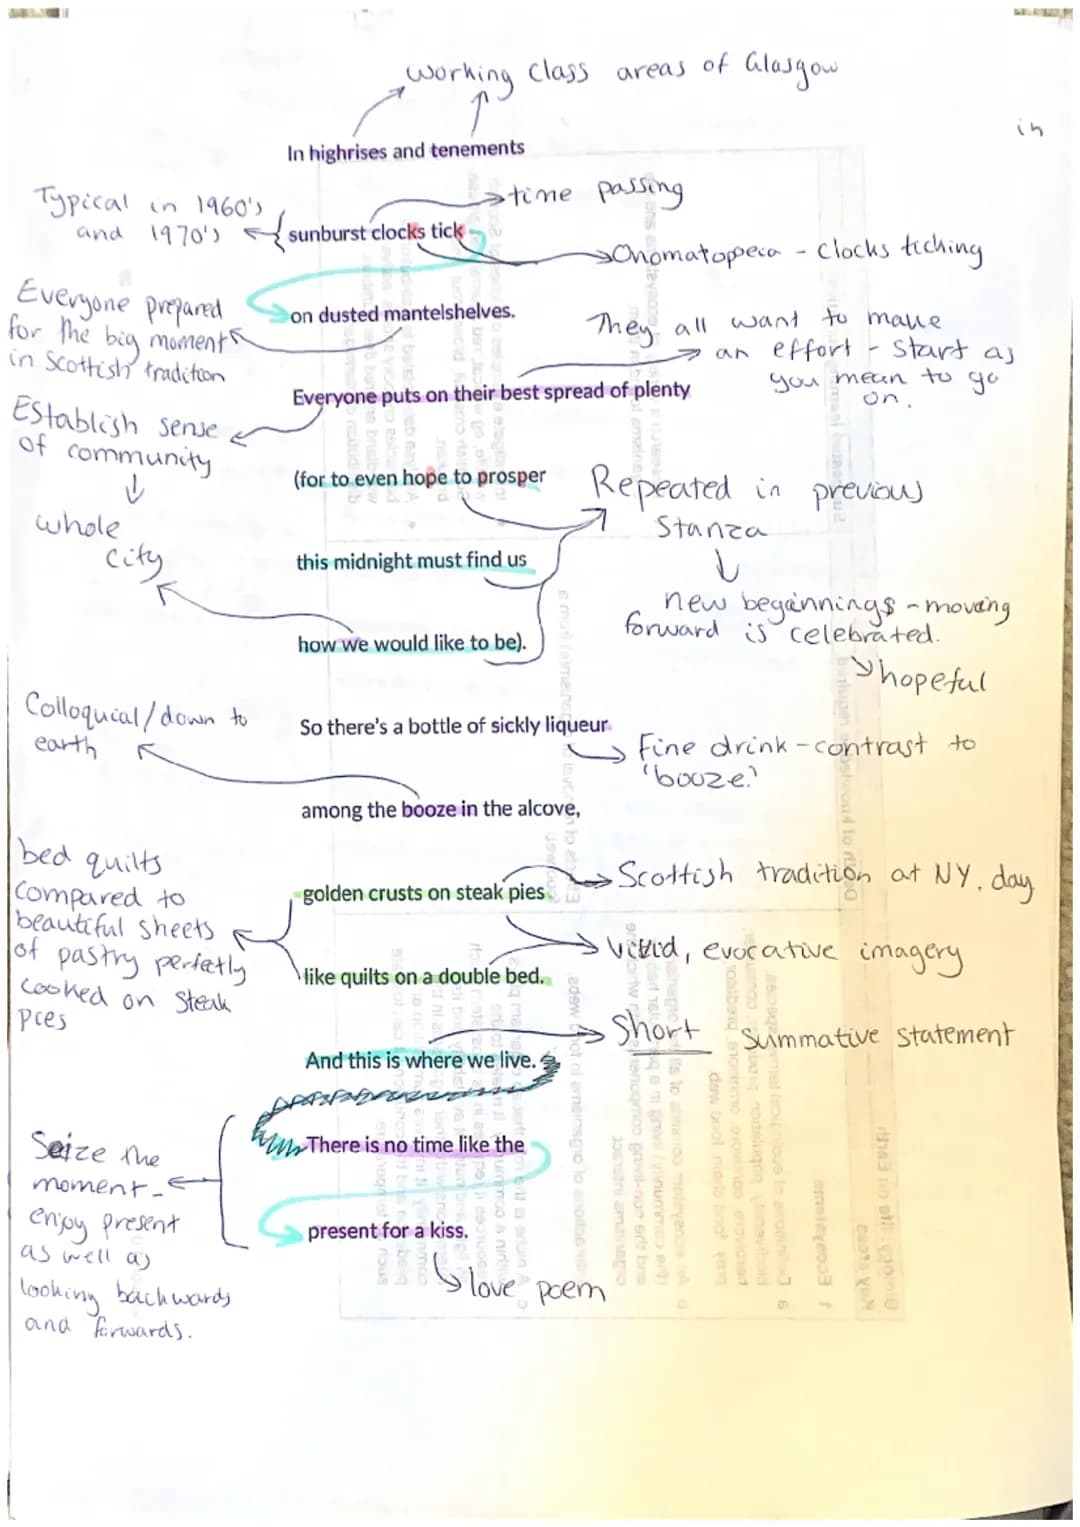 Working Class areas of Glasgow
in
In highrises and tenements
Typical in 1960's
and 1970's
time passing
sunburst clocks tick
Onomatopeia - Clocks ticking
Everyone prepared
for the big moment
in Scottish tradition
on dusted mantelshelves.
They all want to make
an effort - Start as
you mean to go
on.
Everyone puts on their best spread of plenty
Establish sense
of community
whole
city
(for to even hope to prosper
Repeated in previous
Stanza
this midnight must find us
new beginnings - moving
forward is celebrated.
hopeful
how we would like to be).
Colloquial/down to
earth
So there's a bottle of sickly liqueur
Fine drink - contrast to
'booze'
among the booze in the alcove,
bed quilts
compared to
beautiful sheets
of pastry perfectly
cooked on Steak
pies
golden crusts on steak pies
Scottish tradition at NY. day
like quilts on a double bed.
vivid, evocative imagery
And this is where we live.
Short Summative statement
Seize the
moment -
enjoy present
as well as
looking backwards
and forwards.
There is no time like the
present for a kiss.
love poem